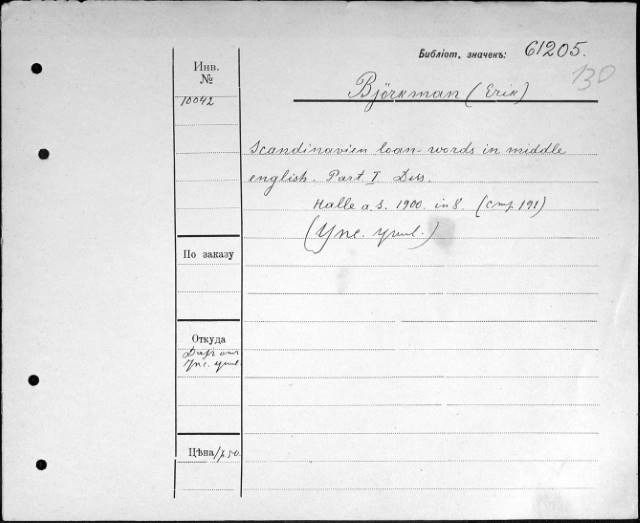 Библіот. значекъ: 61205.
130
Инв.
№
10042
Björkman (Erik)
Scandinavien loan-words in middle
english. Part I. Diss.
Halle a. S. 1900. in 8. (стр. 191)
(Упс. унив.)
По заказу
Откуда
Даръ
Упс. унив.
Цѣна 1 р. 50.